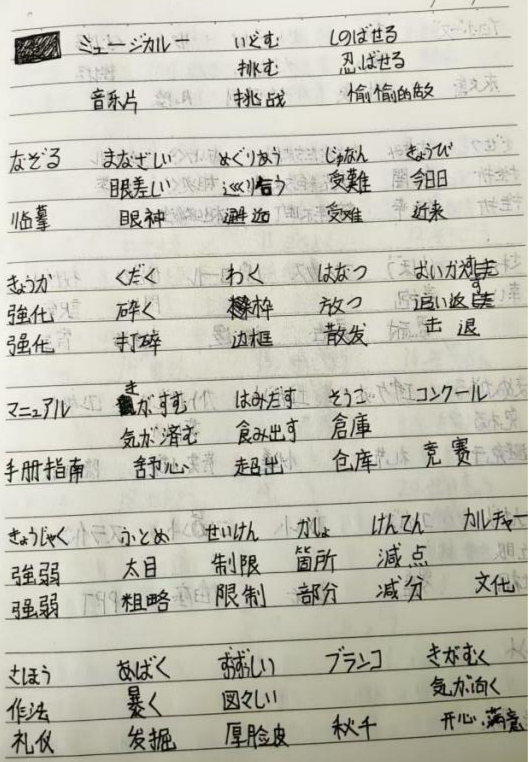 ミュージカル いどむ しのばせる
挑む 忍ばせる
音乐片 挑战 偷偷的做
なぞる まなざしい めぐりあう じゅなん きょうび
眼差しい 巡り合う 受難 今日日
临摹 眼神 邂逅 受难 近来
きょうか くだく わく はなつ よいかえす
強化 砕く 枠 放つ 追い返す
强化 打碎 边框 散发 击退
マニュアル きがすむ はみだす そうこ コンクール
気が済む 食み出す 倉庫
手册指南 舒心 超出 仓库 竞赛
きょうじゃく ふとめ せいげん かしょ げんてん カルチャー
強弱 太目 制限 箇所 減点
强弱 粗略 限制 部分 减分 文化
さほう あばく ずうずうしい ブランコ きがむく
作法 暴く 図々しい 気が向く
礼仪 发掘 厚脸皮 秋千 开心,满意